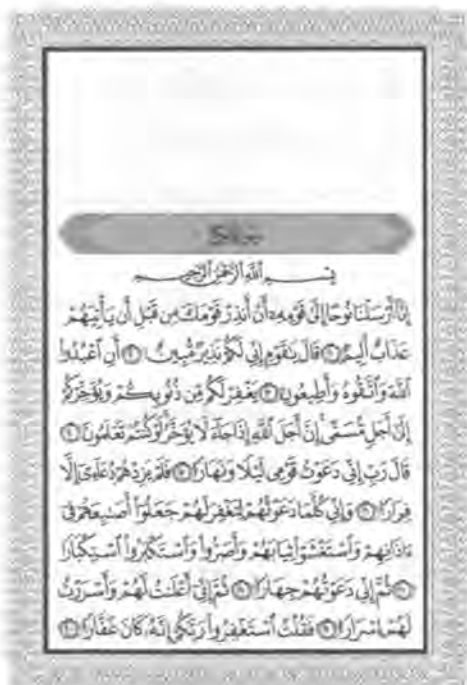 سورة نوح
بِسْمِ ٱللَّهِ ٱلرَّحْمَٰنِ ٱلرَّحِيمِ
إِنَّآ أَرْسَلْنَا نُوحًا إِلَىٰ قَوْمِهِۦٓ أَنْ أَنذِرْ قَوْمَكَ مِن قَبْلِ أَن يَأْتِيَهُمْ
عَذَابٌ أَلِيمٌ ١ قَالَ يَٰقَوْمِ إِنِّى لَكُمْ نَذِيرٌ مُّبِينٌ ٢ أَنِ ٱعْبُدُوا۟
ٱللَّهَ وَٱتَّقُوهُ وَأَطِيعُونِ ٣ يَغْفِرْ لَكُم مِّن ذُنُوبِكُمْ وَيُؤَخِّرْكُمْ
إِلَىٰٓ أَجَلٍ مُّسَمًّى إِنَّ أَجَلَ ٱللَّهِ إِذَا جَآءَ لَا يُؤَخَّرُ لَوْ كُنتُمْ تَعْلَمُونَ ٤
قَالَ رَبِّ إِنِّى دَعَوْتُ قَوْمِى لَيْلًا وَنَهَارًا ٥ فَلَمْ يَزِدْهُمْ دُعَآءِىٓ إِلَّا
فِرَارًا ٦ وَإِنِّى كُلَّمَا دَعَوْتُهُمْ لِتَغْفِرَ لَهُمْ جَعَلُوٓا۟ أَصَٰبِعَهُمْ فِىٓ
ءَاذَانِهِمْ وَٱسْتَغْشَوْا۟ ثِيَابَهُمْ وَأَصَرُّوا۟ وَٱسْتَكْبَرُوا۟ ٱسْتِكْبَارًا
٧ ثُمَّ إِنِّى دَعَوْتُهُمْ جِهَارًا ٨ ثُمَّ إِنِّىٓ أَعْلَنتُ لَهُمْ وَأَسْرَرْتُ
لَهُمْ إِسْرَارًا ٩ فَقُلْتُ ٱسْتَغْفِرُوا۟ رَبَّكُمْ إِنَّهُۥ كَانَ غَفَّارًا ١٠